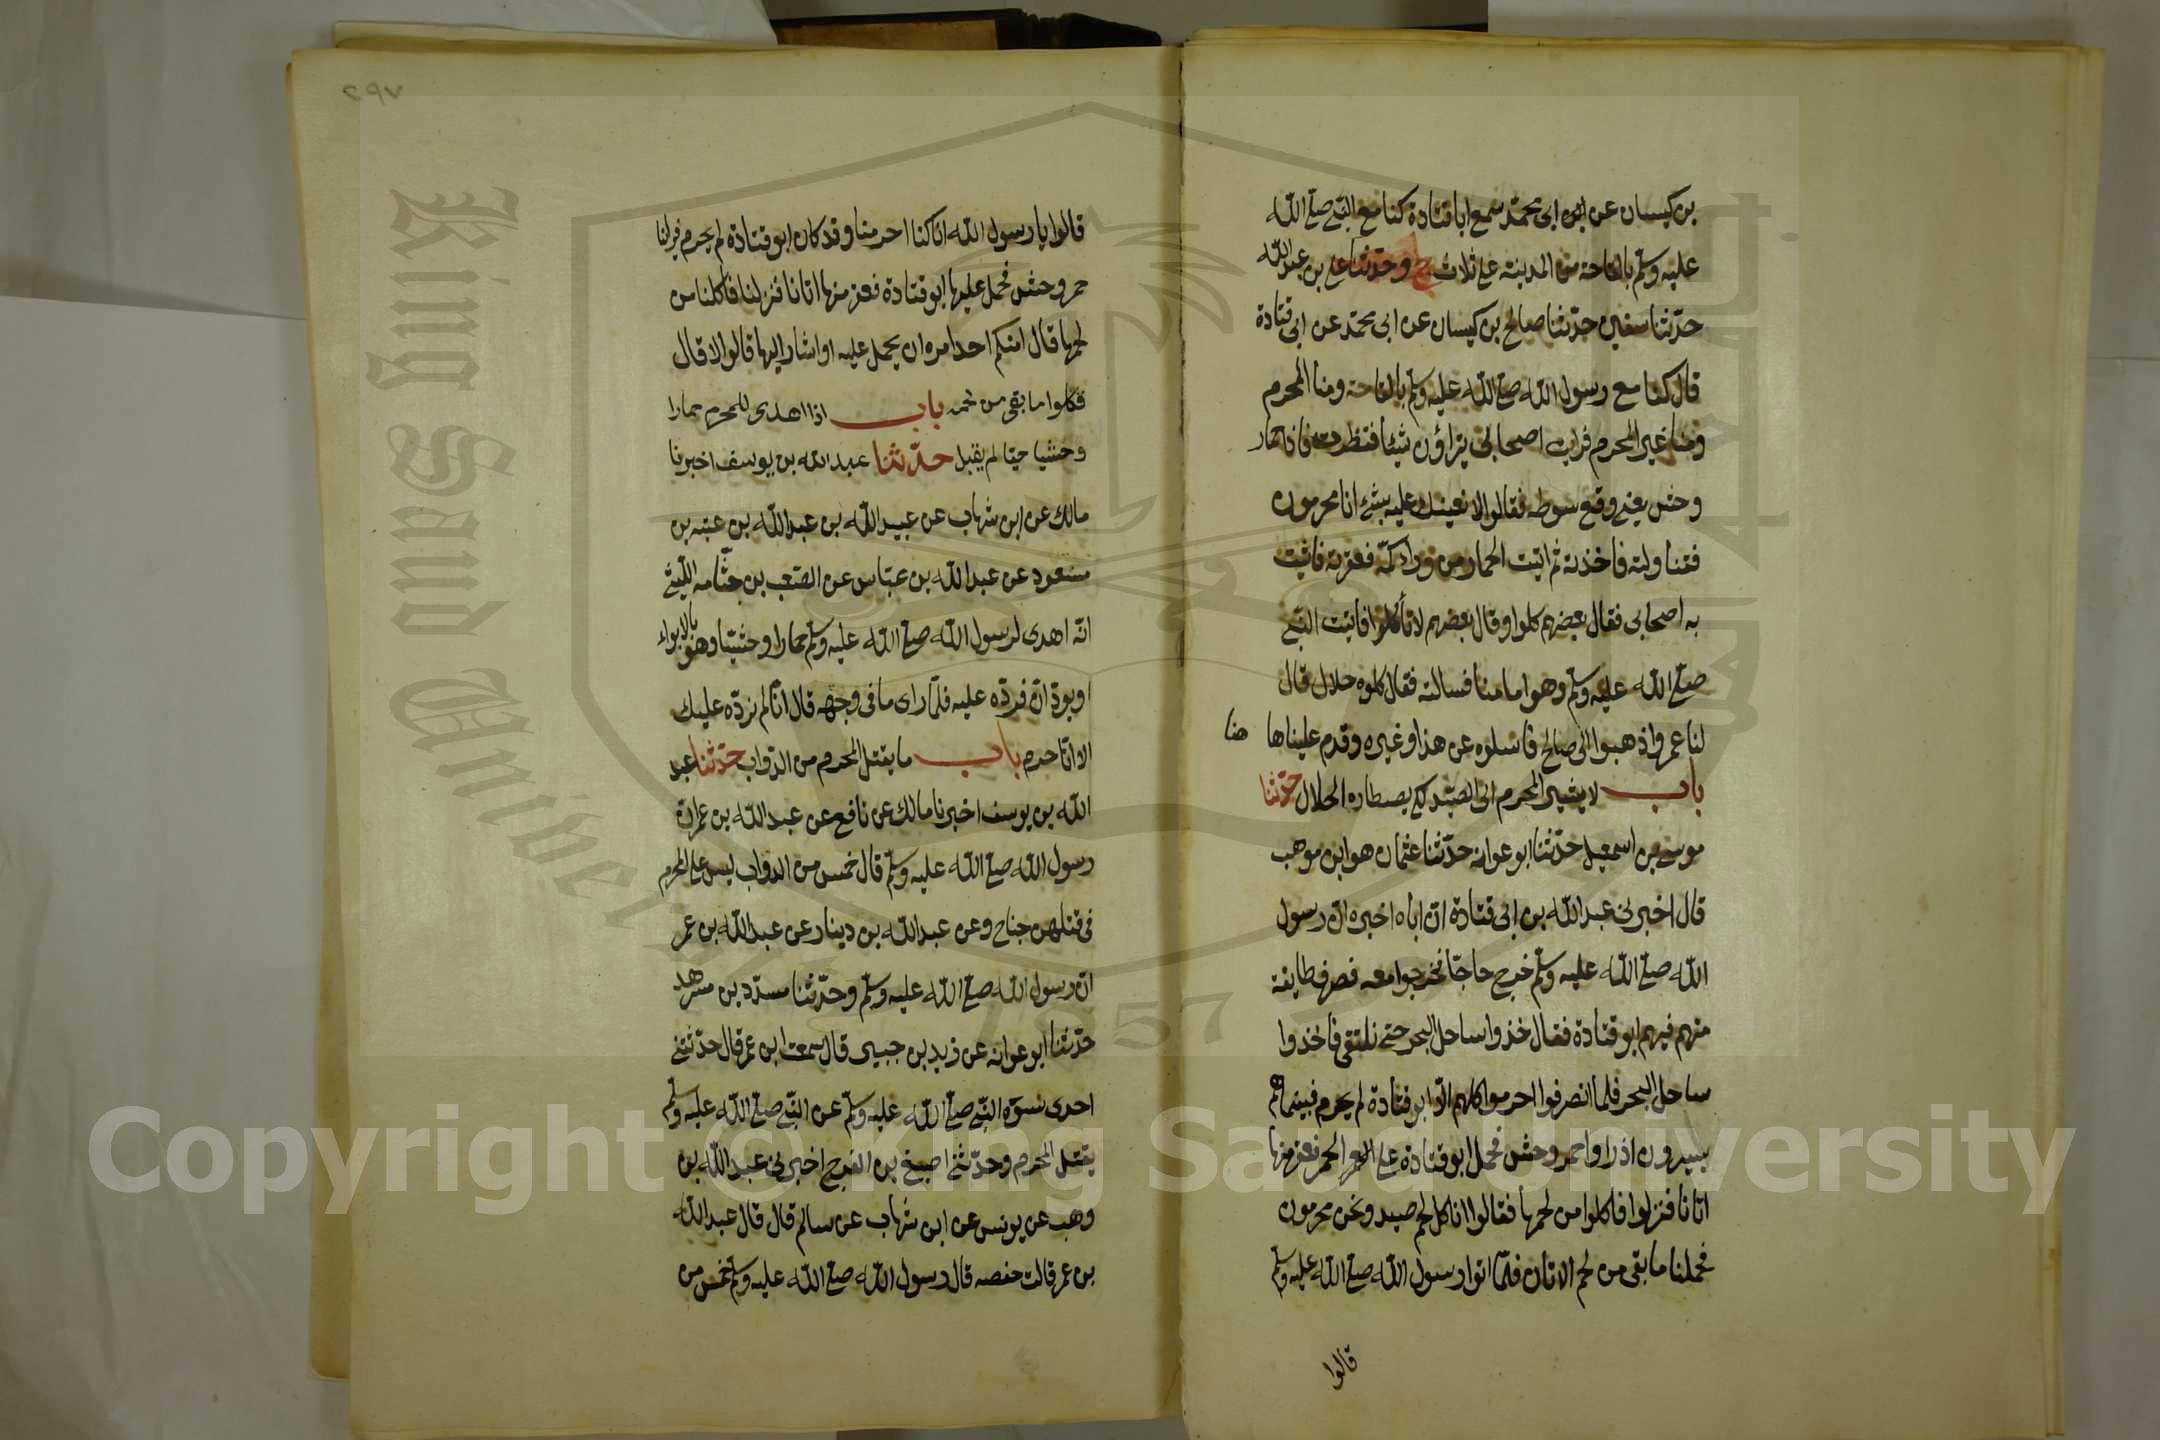 بن كيسان عن ابى محمّد سمع ابا قتادة كنا مع النّبى صلّى اللّه
عليه وسلّم بالقاحة من المدينة على ثلاث ح وحدّثنا على بن عبداللّه
حدّثنا سفين حدّثنا صالح بن كيسان عن ابى محمّد عن ابى قتادة
قال كنا مع رسول اللّه صلّى اللّه عليه وسلّم بالقاحة ومنا المحرم
ومنا غير المحرم فرايت اصحابى يتراؤن شيئا فنظرت فاذا حمار
وحش يعنى وقع سوطه فقالوا لا نعينك عليه بشئ انا محرمون
فتناولته فاخذته ثم اتيت الحمار من وراء اكمّة فعقرته فاتيت
به اصحابى فقال بعضهم كلوا وقال بعضهم لا تأكلوا فاتيت النّبى
صلّى اللّه عليه وسلّم وهو امامنا فسالته فقال كلوه حلال قال
لنا عمرو اذهبوا الى صالح فاسئلوه عن هذا وغيره وقدم علينا ها هنا
باب لا يشير المحرم الى الصّيد لكى يصطاده الحلال حدّثنا
موسى بن اسمعيل حدّثنا ابو عوانه حدّثنا عثمان هو ابن موهب
قال اخبرنى عبداللّه بن ابى قتادة انّ اباه اخبره انّ رسول
اللّه صلّى اللّه عليه وسلّم خرج حاجّا فخرجوا معه فصرف طايفة
منهم فيهم ابو قتادة فقال خذوا ساحل البحر حتّى نلتقى فاخذوا
ساحل البحر فلما انصرفوا احرموا كلهم الّا ابو قتادة لم يحرم فبينما هم
يسيرون اذ راوا حمر وحش فحمل ابو قتادة على الحمر فعقر منها
اتانا فنزلوا فاكلوا من لحمها فقالوا انأكل لحم صيد ونحن محرمون
فحملنا ما بقى من لحم الاتان فلمّا اتوا رسول اللّه صلّى اللّه عليه وسلّم
قالوا
٢٩٧
قالوا يا رسول اللّه انا كنا احرمنا وقد كان ابو قتادة لم يحرم فراينا
حمر وحش فحمل عليها ابو قتادة فعقر منها اتانا فنزلنا فاكلنا من
لحمها قال امنكم احد امره ان يحمل عليه او اشار اليها قالوا لا قال
فكلوا ما بقى من لحمه باب اذا اهدى للمحرم حمارا
وحشيا حيّا لم يقبل حدّثنا عبد اللّه بن يوسف اخبرنا
مالك عن ابن شهاب عن عبيد اللّه بن عبداللّه بن عتبه بن
مسعود عن عبد اللّه بن عبّاس عن الصّعب بن جثّامه اللّيثى
انّه اهدى لرسول اللّه صلّى اللّه عليه وسلّم حمارا وحشيّا وهو بالابواء
او بودّان فردّه عليه فلمّا راى ما فى وجهه قال انّا لم نردّه عليك
الا انّا حرم باب ما يقتل المحرم من الدّواب حدّثنا عبد
اللّه بن يوسف اخبرنا مالك عن نافع عن عبد اللّه بن عمر انّ
رسول اللّه صلّى اللّه عليه وسلّم قال خمس من الدواب ليس على المحرم
فى قتلهن جناح وعن عبداللّه بن دينار عن عبد اللّه بن عمر
انّ رسول اللّه صلّى اللّه عليه وسلّم وحدّثنا مسدّد بن مسرهد
حدّثنا ابو عوانه عن زيد بن جبير قال سمعت ابن عمر قال حدّثتنى
احدى نسوة النّبى صلّى اللّه عليه وسلّم عن النّبى صلّى اللّه عليه وسلّم
يقتل المحرم وحدّثنى اصبغ بن الفرج اخبرنى عبداللّه بن
وهب عن يونس عن ابن شهاب عن سالم قال قال عبد اللّه
بن عمر قالت حفصه قال رسول اللّه صلّى اللّه عليه وسلّم خمس من
King Saud University
1957
Copyright © King Saud University